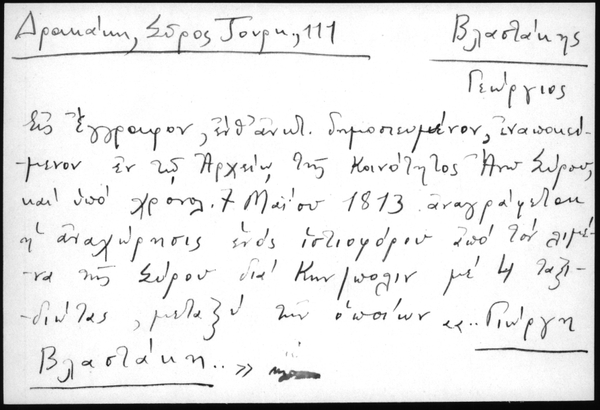 Δρακάκη, Σῦρος Τουρκ., 111
Βλαστάκης
Γεώργιος
Εἰς ἔγγραφον, ἐνθ' ἀνωτ. δημοσιευμένον, ἐναποκεί-
-μενον ἐν τῷ Ἀρχείῳ τῆς Κοινότητος Ἄνω Σύρου,
καί ὑπό χρόνολ. 7 Μαΐου 1813 ἀναγράφεται
ἡ ἀναχώρησις ἑνός ἱστιοφόρου ἀπό τόν λιμέ-
-να τῆς Σύρου διά Κων/πολιν μέ 4 ταξι-
-διώτας, μεταξύ τῶν ὁποίων «..Γιώργη
Βλαστάκη..»